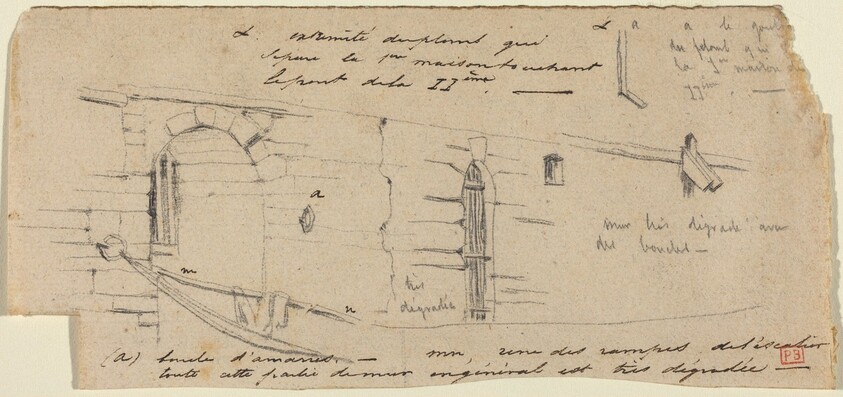 L. extremité du plomb qui
separe la 1re maison touchant
le pont de la IIème. —
L a
a le
du plomb qui
la 1re maison
IIème. —
a
m
n
très
dégradée
mur très dégradé avec
des —
(a) boucle d'amarres. — mn, rene des rampes de l'escalier
toute cette partie de mur en général est très dégradée —
PB